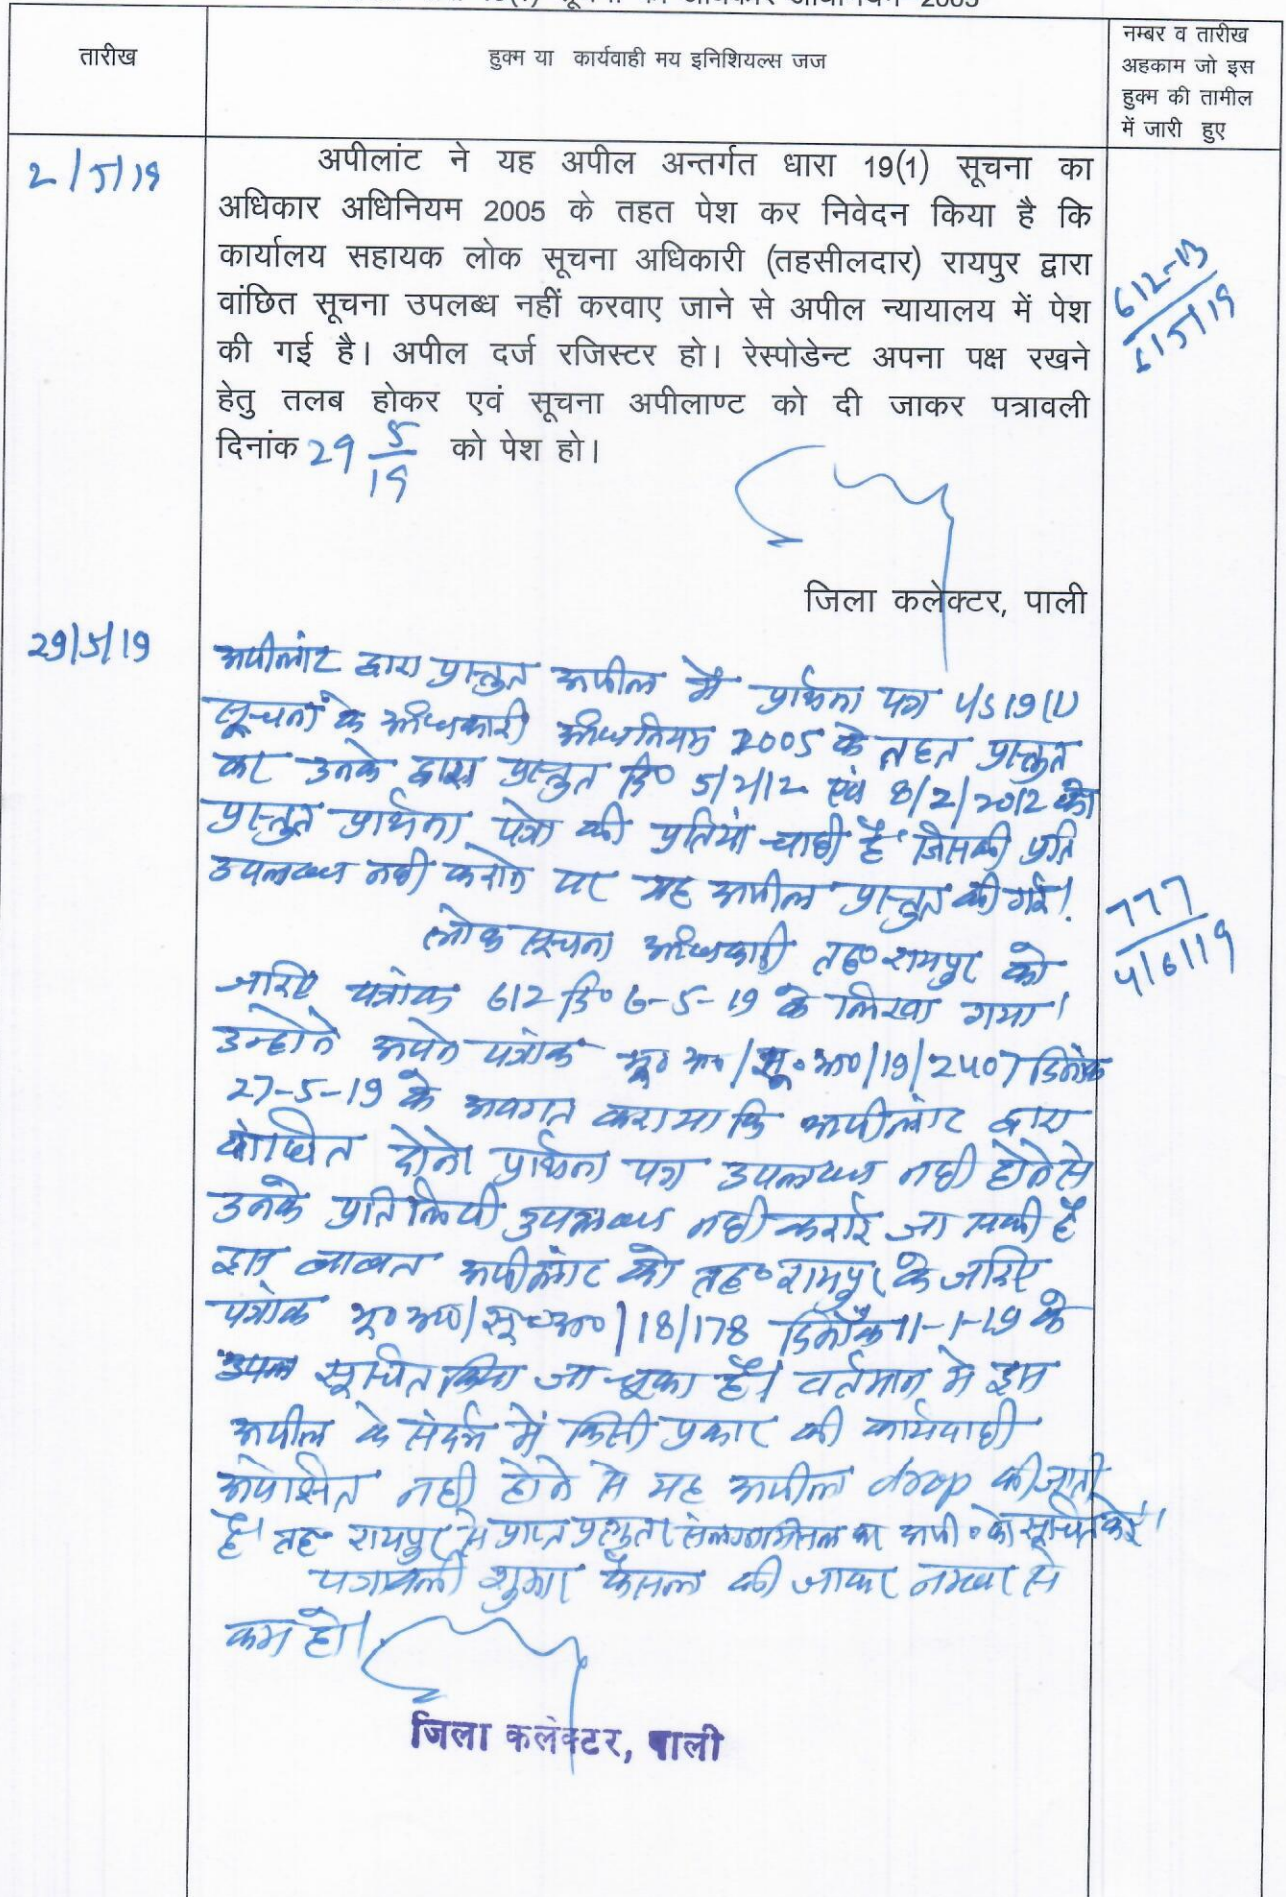 सूचना का अधिकार अधिनियम 2005
तारीख
हुक्म या कार्यवाही मय इनिशियल्स जज
नम्बर व तारीख
अहकाम जो इस
हुक्म की तामील
में जारी हुए
2/5/19
अपीलांट ने यह अपील अन्तर्गत धारा 19(1) सूचना का
अधिकार अधिनियम 2005 के तहत पेश कर निवेदन किया है कि
कार्यालय सहायक लोक सूचना अधिकारी (तहसीलदार) रायपुर द्वारा
वांछित सूचना उपलब्ध नहीं करवाए जाने से अपील न्यायालय में पेश
की गई है। अपील दर्ज रजिस्टर हो। रेस्पोडेन्ट अपना पक्ष रखने
हेतु तलब होकर एवं सूचना अपीलाण्ट को दी जाकर पत्रावली
दिनांक 29 5/19 को पेश हो।
612-13
6/5/19
जिला कलेक्टर, पाली
29/5/19
अपीलांट द्वारा प्रस्तुत अपील में प्रार्थना पत्र u/s 19(1)
सूचना के अधिकारी अधिनियम 2005 के तहत प्रस्तुत
कर उनके द्वारा प्रस्तुत दि० 5/2/12 एवं 8/2/2012 को
प्रस्तुत प्रार्थना पत्रो की प्रतियां चाही है जिसकी प्रति
उपलब्ध नही कराने पर यह अपील प्रस्तुत की गई।
लोक सूचना अधिकारी तह० रायपुर को
जरिए पत्रांक 612 दि० 6-5-19 के लिखा गया।
उन्होने अपने पत्रांक भू० अ०/सू० अ०/19/2407 दिनांक
27-5-19 के अवगत कराया कि अपीलांट द्वारा
वांछित दोनो प्रार्थना पत्र उपलब्ध नही होने से
उनके प्रतिलिपी उपलब्ध नही कराई जा सकी है
इस बाबत अपीलांट को तह० रायपुर के जरिए
पत्रांक भू० अ०/सू० अ०/18/178 दिनांक 11-1-19 के
सूचित किया जा चूका है। वर्तमान मे इस
अपील के संदर्भ में किसी प्रकार की कार्यवाही
अपेक्षित नही होने से यह अपील drop की जाती
है। तह० रायपुर से प्राप्त कर अपी० को सूचित करे।
पत्रावली शुमार फैसल की जाकर नम्बर से
कम हो।
777
4/6/19
जिला कलेक्टर, पाली